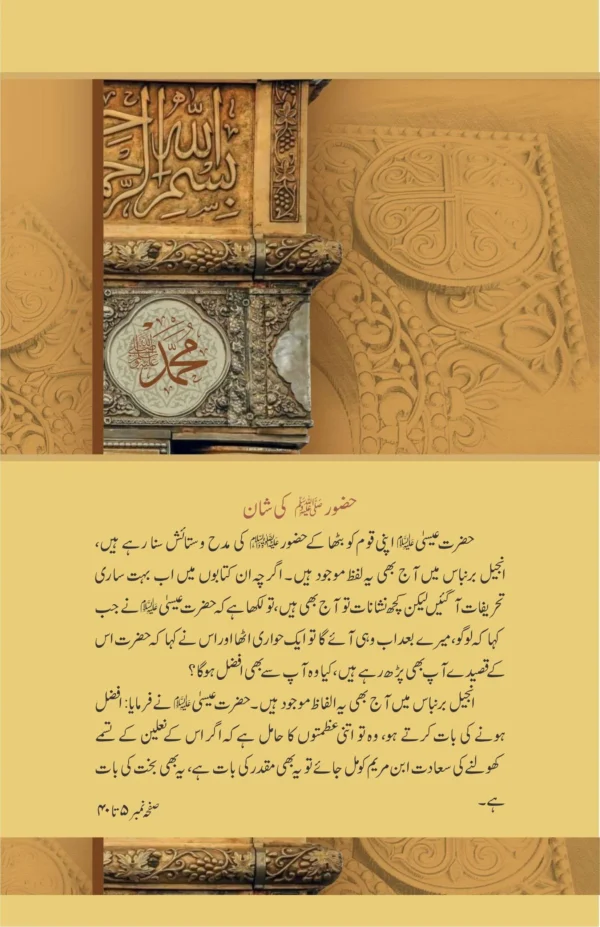 بسم الله الرحمن الرحيم
محمد ﷺ
حضور ﷺ کی شان
حضرت عیسیٰ علیہ السلام اپنی قوم کو بٹھا کے حضور ﷺ کی مدح وستائش سنا رہے ہیں،
انجیل برنباس میں آج بھی یہ لفظ موجود ہیں۔ اگرچہ ان کتابوں میں اب بہت ساری
تحریفات آگئیں لیکن کچھ نشانات تو آج بھی ہیں، تو لکھا ہے کہ حضرت عیسیٰ علیہ السلام نے جب
کہا کہ لوگو، میرے بعد اب وہی آئے گا تو ایک حواری اٹھا اور اس نے کہا کہ حضرت اس
کے قصیدے آپ بھی پڑھ رہے ہیں، کیا وہ آپ سے بھی افضل ہوگا؟
انجیل برنباس میں آج بھی یہ الفاظ موجود ہیں۔ حضرت عیسیٰ علیہ السلام نے فرمایا: افضل
ہونے کی بات کرتے ہو، وہ تو اتنی عظمتوں کا حامل ہے کہ اگر اس کے نعلین کے تسمے
کھولنے کی سعادت ابن مریم کو مل جائے تو یہ بھی مقدر کی بات ہے، یہ بھی بخت کی بات
ہے۔
صفحہ نمبر ۵ تا ۴۰